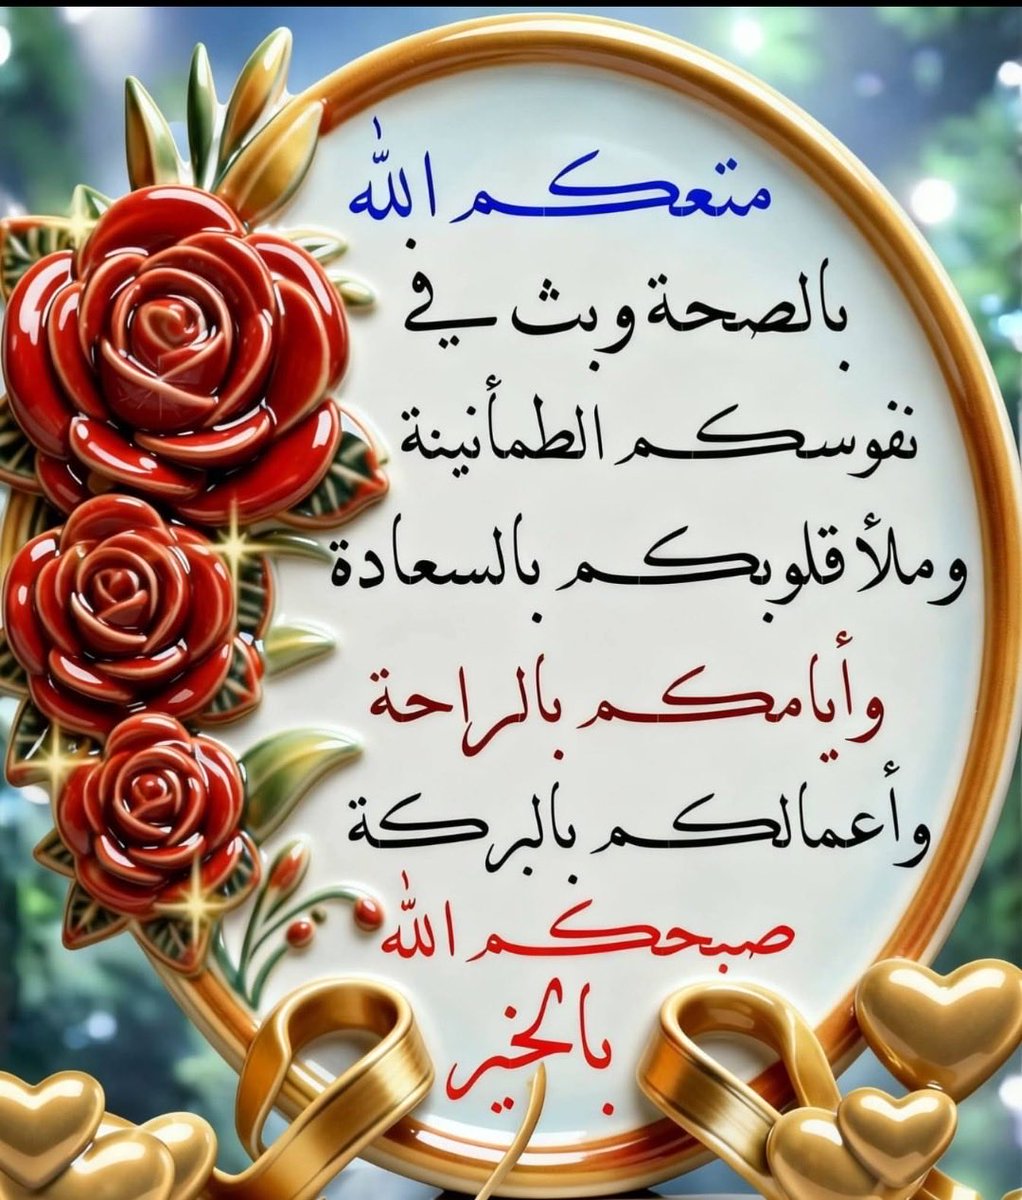 متعكم الله
بالصحة وبث في
نفوسكم الطمأنينة
وملأ قلوبكم بالسعادة
وأيامكم بالراحة
وأعمالكم بالبركة
صبحكم الله
بالخير